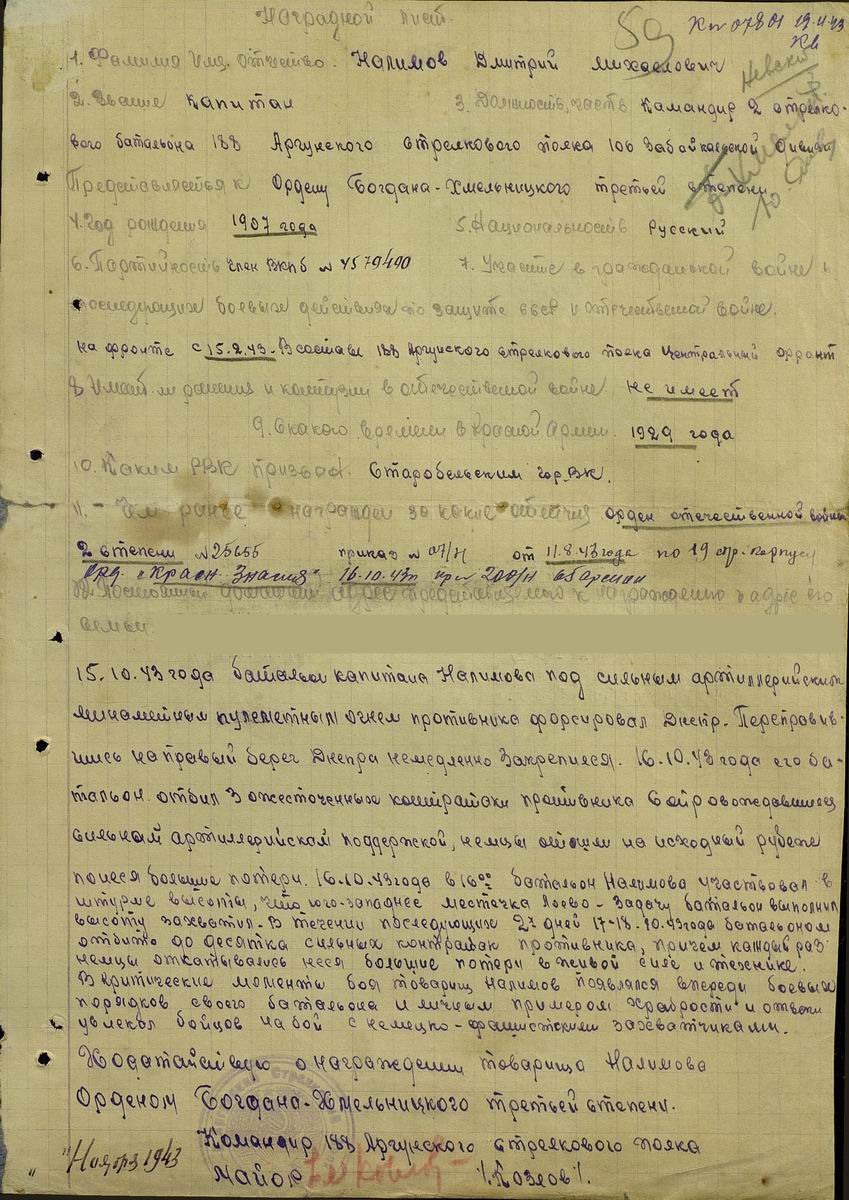 Наградной лист.
59
Кп 07801 19.11.43
Кв
1. Фамилия Имя. отчество. Налимов Дмитрий михайлович
Невский
2. Звание Капитан 3. Должность, часть Командир 2 стрелко-
вого батальона 188 Аргунского стрелкового полка 106 Забайкальской Дивизии
Представляется к Ордену Богдана-Хмельницкого третьей степени
4. Год рождения 1907 года 5. Национальность Русский
6. Партийность член ВКПб № 4579490 7. Участие в гражданской войне и
последующих боевых действиях по защите ссср и отечественной войне.
на фронте с 15.2.43. В составе 188 Аргунского стрелкового полка Центральный фронт
8 Имеет ли ранения и контузии в отечественной войне не имеет
9. с какого времени в Красной Армии. 1929 года
10. Каким РВК призван. Старобельским гор.ВК.
11. Чем ранее награжден за какие отличия орден отечественной войны
2 степени №25655 приказ № 07/н от 11.8.43 года по 19 стр. корпусу
Орд. "Красн. Знамя" 16.10.43г пр № 200/н
12. Постоянный домашний адрес представляемого к награждению и адрес его
семьи.
15.10.43 года батальон капитана Налимова под сильным артиллерийским
минометным пулеметным огнем противника форсировал Днепр. Переправив-
шись на правый берег Днепра немедленно Закрепился. 16.10.43 года его ба-
тальон отбил 3 ожесточенных контратаки противника Сопровождавшиеся
сильной артиллерийской поддержкой, немцы отошли на исходный рубеж
понеся большие потери. 16.10.43 года в 16⁰⁰ батальон Налимова участвовал в
штурме высоты, что юго-западнее местечка Лоево - Задачу батальон выполнил
высоту захватил. В течении последующих 2х дней 17-18.10.43 года батальоном
отбито до десятка сильных контратак противника, причем каждый раз
немцы откатывались неся большие потери в живой силе и технике.
В критические моменты боя товарищ Налимов появлялся впереди боевых
порядков своего батальона и личным примером храбрости и отваги
увлекал бойцов на бой с немецко-фашистскими захватчиками.
Ходатайствую о награждении товарища Налимова
Орденом Богдана-Хмельницкого третьей степени.
Командир 188 Аргунского стрелкового полка
" " Ноября 1943 майор /Козлов/.